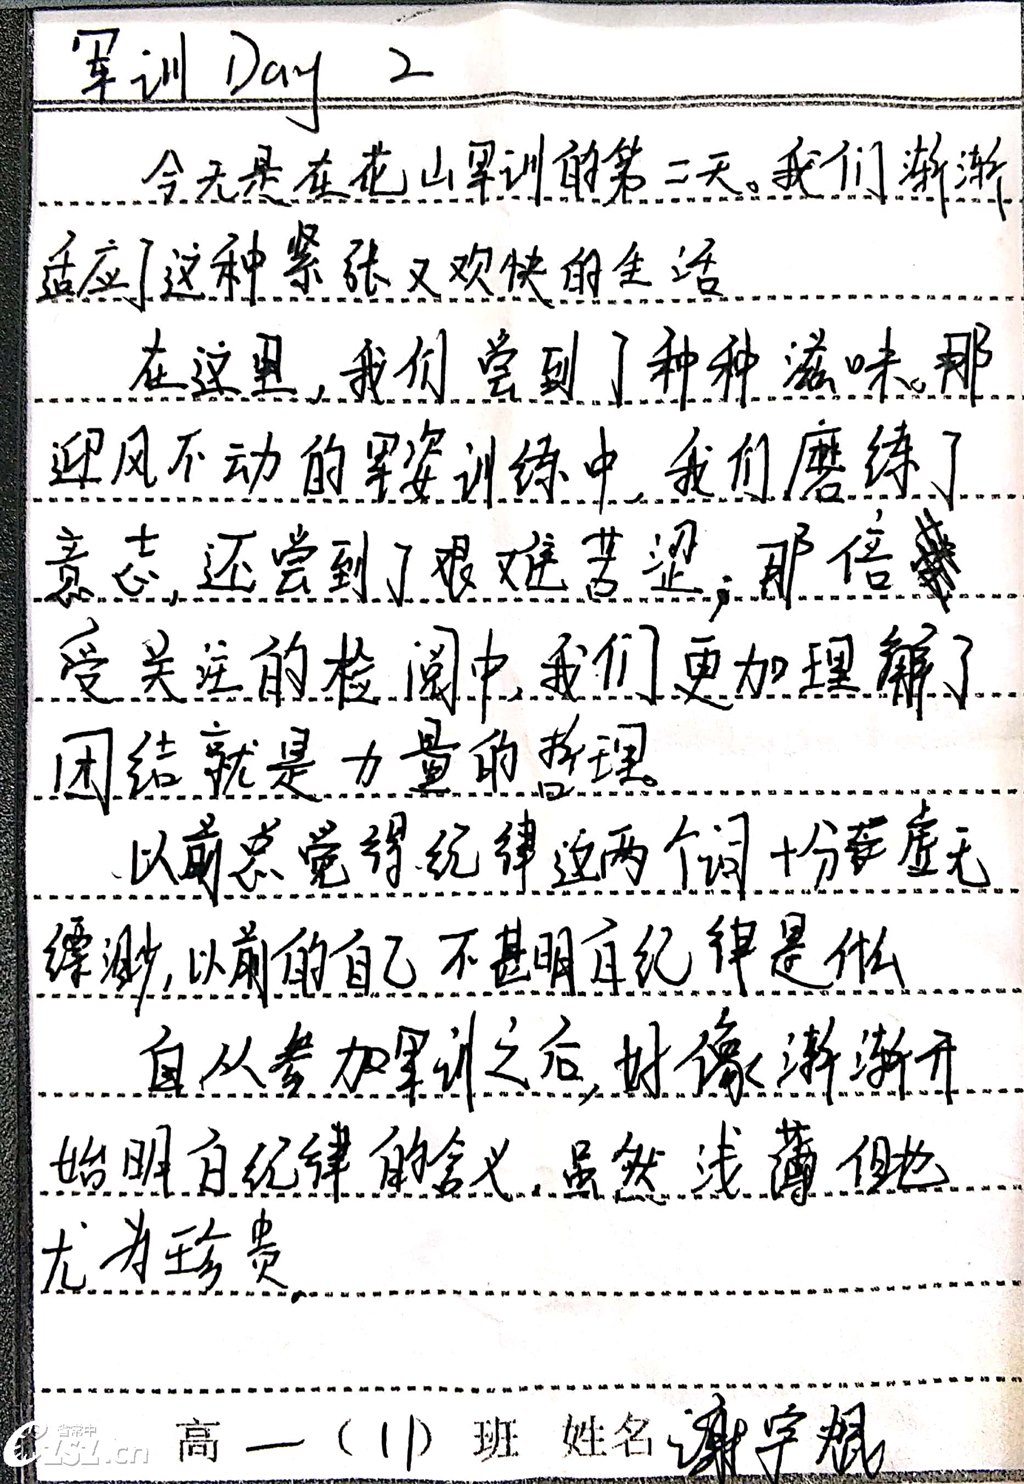 军训 Day 2
今天是在花山军训的第二天。我们渐渐
适应了这种紧张又欢快的生活
在这里,我们尝到了种种滋味。那
迎风不动的军姿训练中,我们磨练了
意志,还尝到了艰难苦涩;那倍
受关注的检阅中,我们更加理解了
团结就是力量的哲理。
以前总觉得纪律这两个词十分虚无
缥渺,以前的自己不甚明白纪律是什么
自从参加军训之后,好像渐渐开
始明白纪律的含义,虽然浅薄但也
尤为珍贵.
高一(11)班 姓名 谢宇焜
省常中
CZSZ.cn